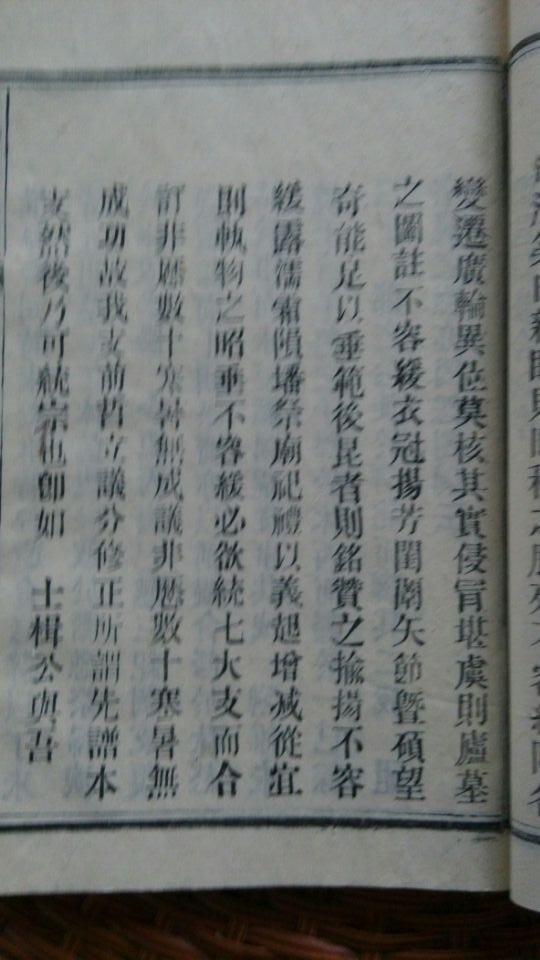 變遷廣輪異位莫核其實侵冐堪虞則廬墓
之圖註不容緩衣冠揚芳閨閫矢節曁碩望
奇能足以垂範後昆者則銘贊之揄揚不容
緩露濡霜隕墦祭廟祀禮以義起增减從宜
則軌物之昭垂不容緩必欲統七大支而合
訂非歷數十寒暑無成議非歷數十寒暑無
成功故我支前哲立議分修正所謂先譜本
支然後乃可統宗也卽如 士楫公與吾